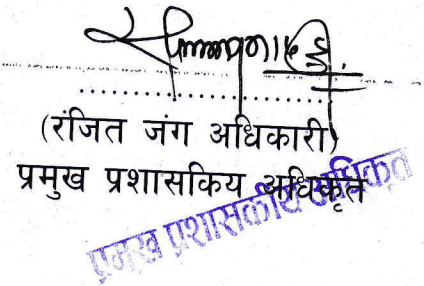 (रंजित जंग अधिकारी)
प्रमुख प्रशासकिय अधिकृत
प्रमुख प्रशासकीय अधिकृत